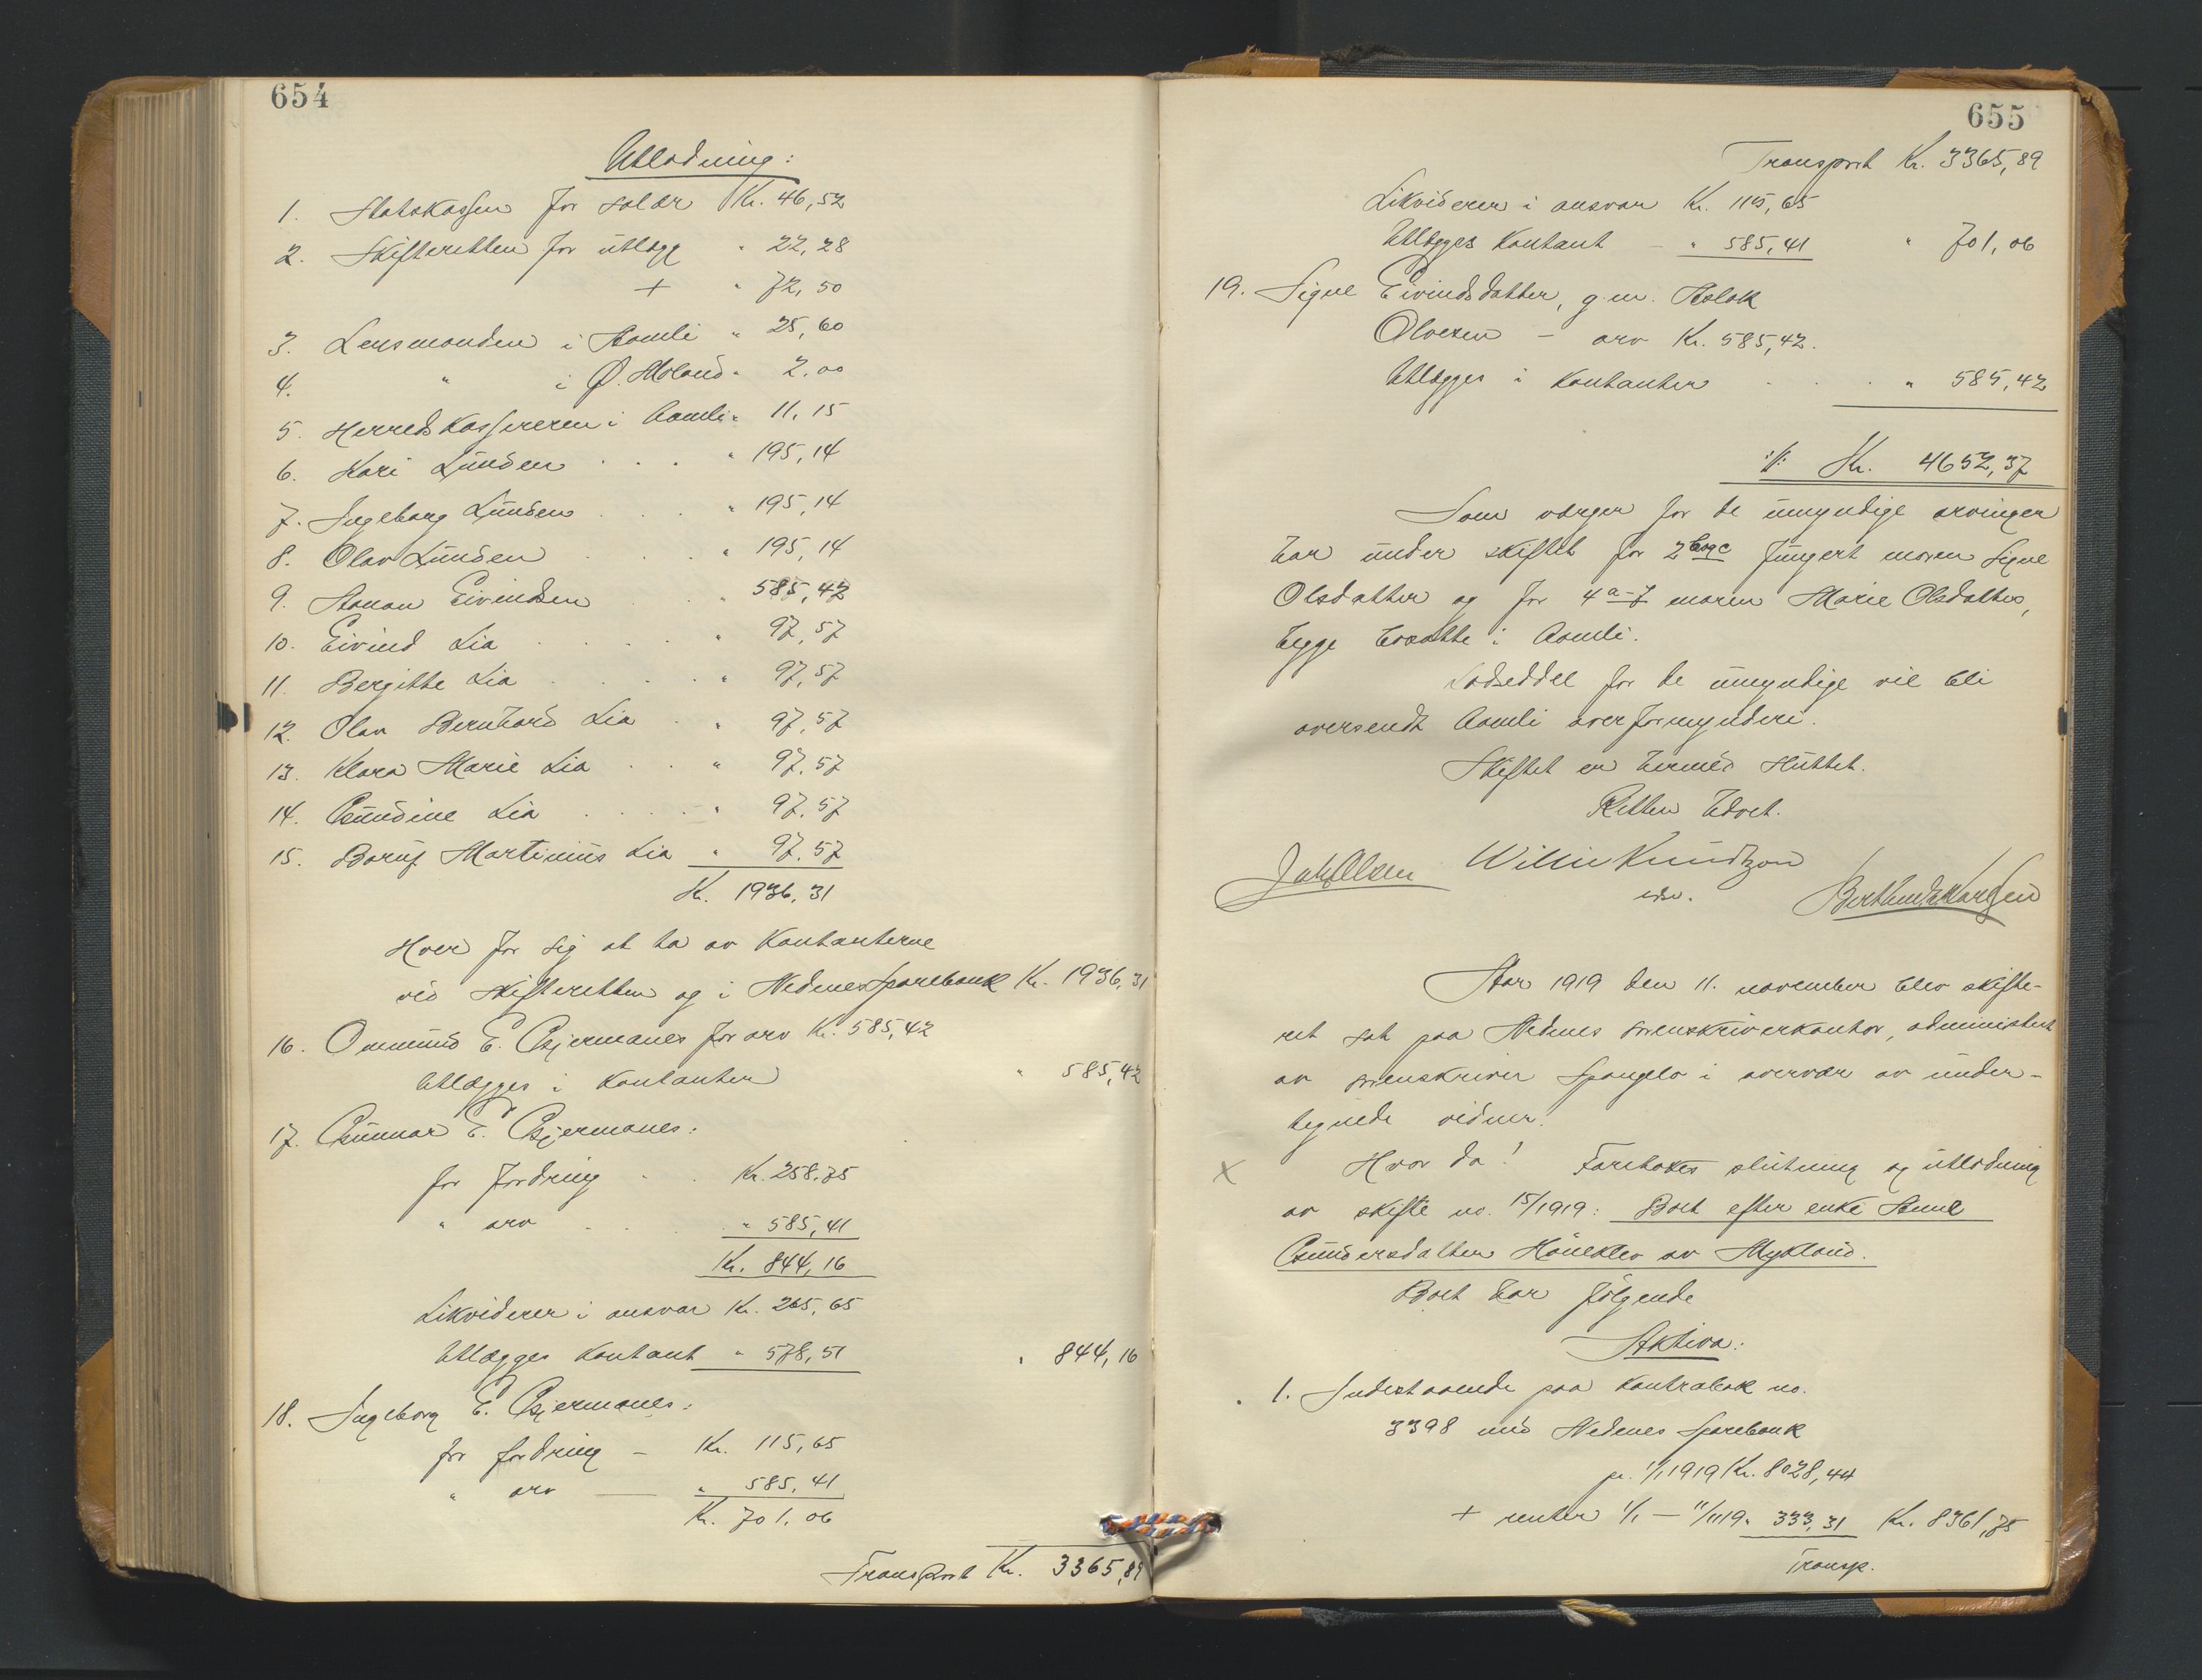 654
Utlodning:
1. Statskassen for salær Kr. 46,52
2. Skifteretten for utlæg " 22,28
+ " 72,50
3. Lensmanden i Aamli " 25,60
4. " i Ø. Moland " 2.00
5. Herredskassereren i Aamli " 11.15
6. Kari Lunden . . . " 195,14
7. Ingeborg Lunden . . . " 195,14
8. Olav Lunden . . . " 195,14
9. Aanon Eivindsen . . " 585,42
10. Eivind Lia . . . . . " 97,57
11. Bergitte Lia . . . . . " 97,57
12. Olav Bernhard Lia . " 97,57
13. Klara Marie Lia . . " 97,57
14. Gundine Lia . . . . . " 97,57
15. Martinius Lia " 97,57
Kr. 1936,31
Hver for sig at ta av kontanterne
ved skifteretten og i Nedenes Sparebank Kr. 1936,31
16. Ommund E. Gjermanes for arv Kr. 585,42
Utlægges i kontanter " 585,42
17. Gunnar E. Gjermanes:
for fordring . . Kr. 258,75
" arv . . . " 585,41
Kr. 844,16
Likviderer i ansvar Kr. 265,65
Utlægges kontant " 578,51 " 844,16
18. Ingeborg E. Gjermanes:
for fordring — Kr. 115,65
" arv — " 585,41
Kr. 701,06
Transport Kr. 3365,89
655
Transport Kr. 3365,89
Likviderer i ansvar Kr. 115,65
Utlægges kontant — " 585,41 " 701,06
19. Signe Eivindsdatter, g.m. Aslak
Olvesen — arv Kr. 585,42.
Utlægges i kontanter . . . " 585,42
:/: Kr. 4652,37
Som værger for de umyndige arvinger
har under skiftet for 2 b og c fungert moren Signe
Olsdatter og for 4 a-f moren Marie Olsdatter,
begge bosatte i Aamli.
Lodseddel for de umyndige vil bli
oversendt Aamli overformynderi.
Skiftet er hermed sluttet.
Retten hævet.
Jak Olsen Willie Knudtzon
edsv.
Aar 1919 den 11. november blev skifte-
ret sat paa Nedenes sorenskriverkontor, administert
av sorenskriver Spangelo i overvær av under-
tegnede vidner.
x Hvor da! Foretokes slutning og utlodning
av skifte no. 15/1919: Boet efter enke Anne
Gundersdatter Haneklev av Mykland.
Boet har følgende
Aktiva:
1. Indestaaende paa kontrabok no.
3398 med Nedenes Sparebank
pr. 1/1 1919 Kr. 8028,44
+ renter 1/1 — 11/11 19 " 333,31 Kr. 8361,75
Transp.